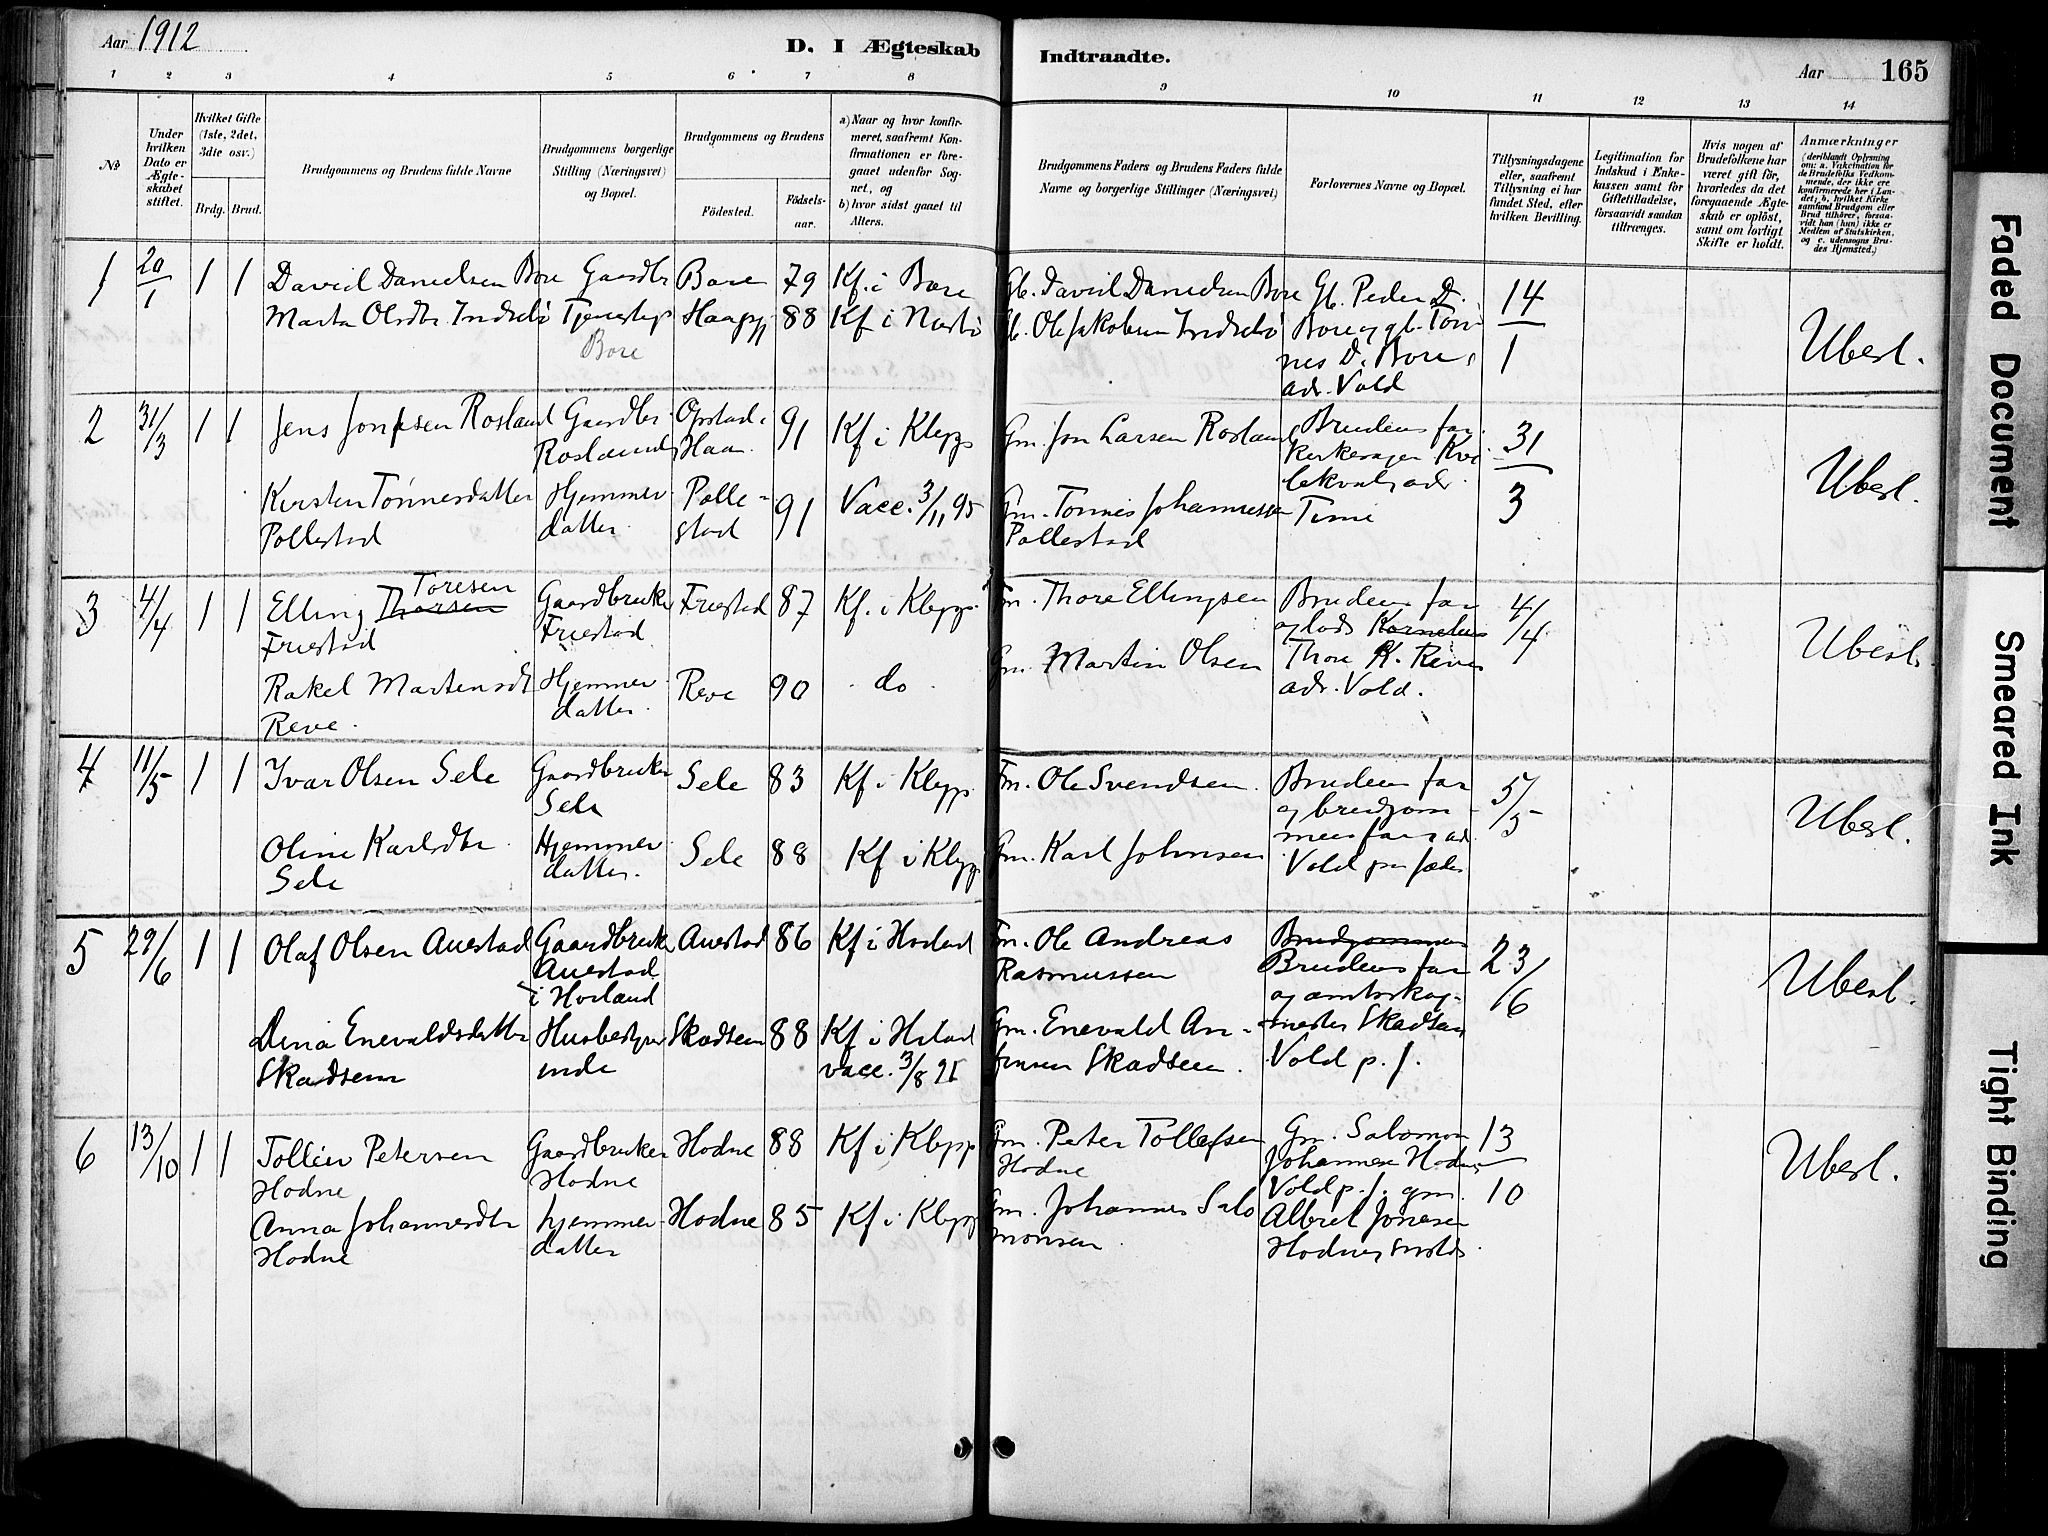 Aar 1912
D. I Ægteskab Indtraadte.
Aar 165
1 2 3 4 5 6 7 8 9 10 11 12 13 14
№
Under hvilken Dato er Ægteskabet stiftet.
Hvilket Gifte (1ste, 2det, 3die osv.)
Brdg. Brud.
Brudgommens og Brudens fulde Navne
Brudgommens borgerlige Stilling (Næringsvei) og Bopæl.
Brudgommens og Brudens
Fødested.
Fødselsaar.
a) Naar og hvor konfirmeret, saafremt Konfirmationen er foregaaet udenfor Sognet, og
b) hvor sidst gaaet til Alters.
Brudgommens Faders og Brudens Faders fulde Navne og borgerlige Stillinger (Næringsvei)
Forlovernes Navne og Bopæl.
Tillysningsdagene eller, saafremt Tillysning ei har fundet Sted, efter hvilken Bevilling.
Legitimation for Indskud i Enkekassen samt for Giftetilladelse, forsaavidt saadan tiltrænges.
Hvis nogen af Brudefolkene har været gift før, hvorledes da det foregaaende Ægteskab er opløst, samt om lovligt Skifte er holdt.
Anmærkninger
(deriblandt Oplysning om: a. Vakcination for de Brudefolks Vedkommende, der ikke ere konfirmerede her i Landet; b. hvilket Kirkesamfund Brudgom eller Brud tilhører, forsaavidt han (hun) ikke er Medlem af Statskirken, og c. udensogns Brudes Hjemsted.)
1 20/1 1 1 David Danielsen Bore Gaardbr Bore 79 Kf. i Bore Gb. David Danielsen Bore Gb. Peder D. 14
Marta Olsdtr Indsebø Tjenestep Haapp 88 Kf i Nærbø Gb. Ole Jakobsen Indsebø Bore og gb. Tøn-
Bore nes D. Bore, 1 Ubesl.
adr. Vold
2 31/3 1 1 Jens Jonssen Rosland Gaardbr. Opstad i 91 Kf i Klepp Gm. Jon Larsen Rosland Brudens far 31
Rosland Haa. kirkesanger Kve
lekval, adr.
Kirsten Tønnesdatter Hjemme- Polle- 91 Vacc. 3/11 95 Gm. Tønnes Johannessen Time 3 Ubesl.
Pollestad datter. stad Pollestad
3 4/4 1 1 Elling Thorsen Toresen Gaardbruker Friestad 87 Kf. i Klepp. Fm. Thore Ellingsen Brudens far 4/4
Friestad Friestad og lods Kornelius
Rakel Martensdt Hjemme- Reve 90 do Gm. Martin Olsen Thore K. Reve Ubesl.
Reve. datter. adr. Vold.
4 11/5 1 1 Ivar Olsen Sele Gaardbruker Sele 83 Kf i Klepp Fm. Ole Svendsen. Brudens far 5/5
Sele og brudgom-
mens far, ad.
Oline Karlsdtr Hjemme- Sele 88 Kf i Klepp Gm. Karl Johnsen Vold pr Jæder Ubesl.
Sele datter.
5 29/6 1 1 Olaf Olsen Auestad Gaardbruker Auestad 86 Kf i Høiland Fm. Ole Andreas Brudgommen 23/6
Auestad Rasmussen Brudens far
i Høiland og amtsskog-
Dina Enevaldsdatter Husbestyrer- Skadsem 88 Kf i Høiland Gm. Enevald An- mester Skadsem Ubesl.
Skadsem inde vacc. 3/8 91 finsen Skadsem. Vold p. J.
6 13/10 1 1 Tolleiv Petersen Gaardbruker Hodne 88 Kf i Klepp Gm. Peter Tollefsen Gm. Salomon 13
Hodne Hodne Hodne Johannesen Hodne,
Vold p. J. gm. 10
Anna Johannesdtr hjemme- Hodne 85 Kf i Klepp Gm. Johannes Salo Albret Jonesen Ubesl.
Hodne datter monsen. Hodne, smsts.
Faded Document
Smeared Ink
Tight Binding